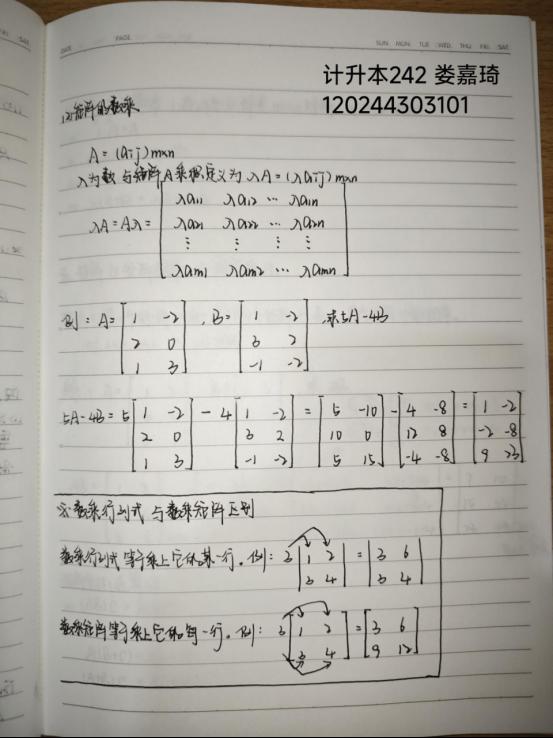 DATE PAGE SUN MON TUE WED THU FRI SAT
计升本242 娄嘉琦
120244303101
(2)矩阵的数乘
A = (aij)m×n
λ为数与矩阵A乘积定义为 λA = (λaij)m×n
λA = Aλ = [λa11 λa12 ⋯ λa1n
λa21 λa22 ⋯ λa2n
⋮ ⋮ ⋮ ⋮
λam1 λam2 ⋯ λamn]
例: A = [1 -2 , B = [1 -2 ,求5A-4B
2 0 3 2
1 3] -1 -2]
5A-4B = 5[1 -2 - 4[1 -2 = [5 -10 - [4 -8 = [1 -2
2 0 3 2 10 0 12 8 -2 -8
1 3] -1 -2] 5 15] -4 -8] 9 23]
※数乘行列式与数乘矩阵区别
数乘行列式等于乘上它的某一行。例: 3|1 2| = |3 6|
|3 4| |3 4|
数乘矩阵等于乘上它的每一行。例: 3[1 2 = [3 6
3 4] 9 12]